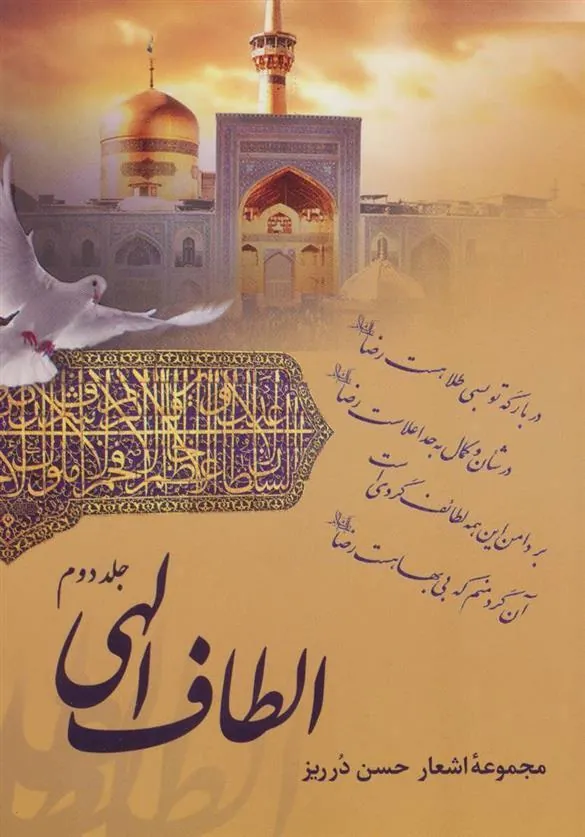 در بارگه تو بسی طلا هست رضا
در شأن و کمال به حد اعلاست رضا
بر دامن این همه لطائف گردی ست
آن گرد منم که بی بها هست رضا
جلد دوم
الطاف الهی
مجموعهٔ اشعار حسن دُرریز